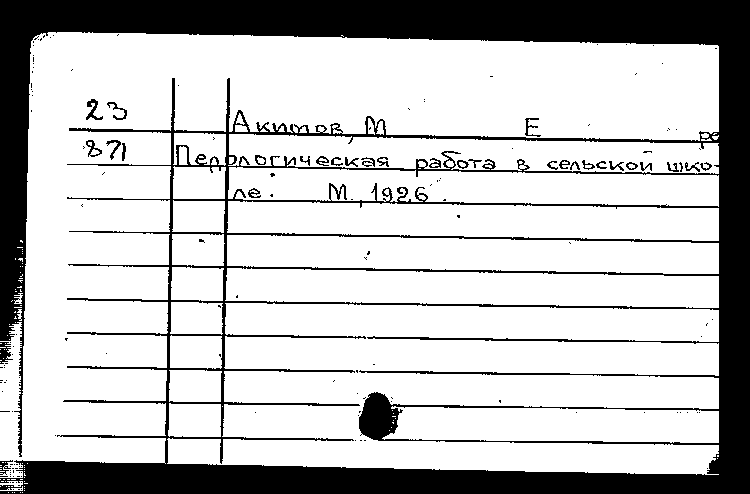 23
Акимов, М Е ре
871 Педологическая работа в сельской шко-
ле. М., 1926.